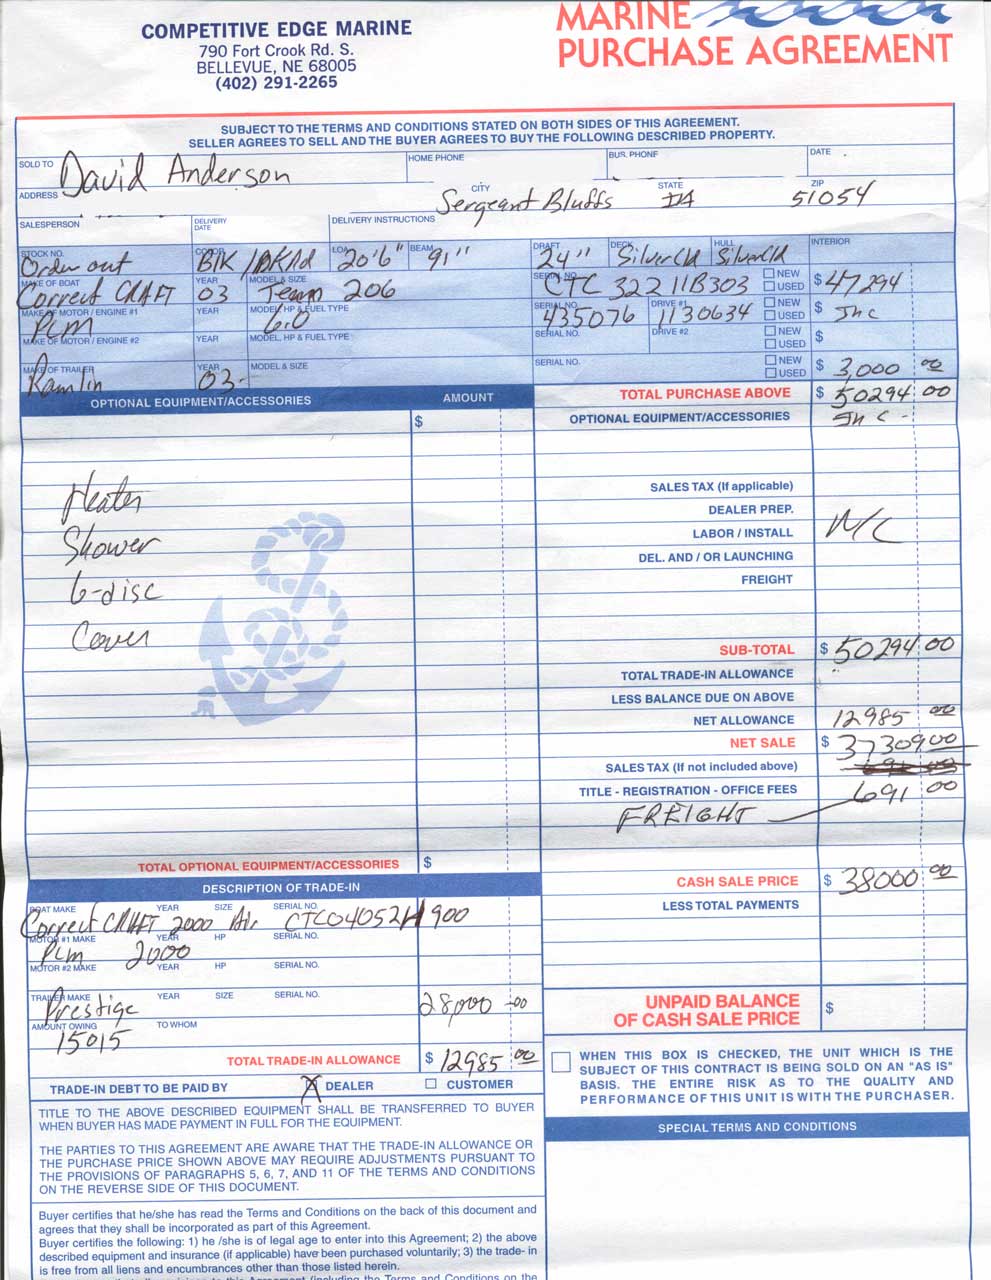 COMPETITIVE EDGE MARINE
790 Fort Crook Rd. S.
BELLEVUE, NE 68005
(402) 291-2265
MARINE
PURCHASE AGREEMENT
SUBJECT TO THE TERMS AND CONDITIONS STATED ON BOTH SIDES OF THIS AGREEMENT.
SELLER AGREES TO SELL AND THE BUYER AGREES TO BUY THE FOLLOWING DESCRIBED PROPERTY.
SOLD TO David Anderson HOME PHONE BUS. PHONE DATE
ADDRESS CITY Sergeant Bluffs STATE IA ZIP 51054
SALESPERSON DELIVERY DATE DELIVERY INSTRUCTIONS
STOCK NO. Order out COLOR Blk / DKRd LOA 20'6" BEAM 91" DRAFT 24" DECK SilverCld HULL SilverCld INTERIOR
MAKE OF BOAT Correct CRAFT YEAR 03 MODEL & SIZE Team 206 SERIAL NO. CTC 32211B303 NEW USED $ 47294
MAKE OF MOTOR / ENGINE #1 PCM YEAR MODEL, HP & FUEL TYPE 6.0 SERIAL NO. 435076 DRIVE #1 1130634 NEW USED $ Inc
MAKE OF MOTOR / ENGINE #2 YEAR MODEL, HP & FUEL TYPE SERIAL NO. DRIVE #2 NEW USED $
MAKE OF TRAILER Ramlin YEAR 03- MODEL & SIZE SERIAL NO. NEW USED $ 3,000 00
OPTIONAL EQUIPMENT/ACCESSORIES AMOUNT
$
Heater
Shower
6-disc
Cover
TOTAL OPTIONAL EQUIPMENT/ACCESSORIES $
TOTAL PURCHASE ABOVE $ 50294 00
OPTIONAL EQUIPMENT/ACCESSORIES Inc -
SALES TAX (If applicable)
DEALER PREP.
LABOR / INSTALL N/C
DEL. AND / OR LAUNCHING
FREIGHT
SUB-TOTAL $ 50294 00
TOTAL TRADE-IN ALLOWANCE
LESS BALANCE DUE ON ABOVE
NET ALLOWANCE 12985 00
NET SALE $ 37309 00
SALES TAX (If not included above)
TITLE - REGISTRATION - OFFICE FEES 691 00
FREIGHT
CASH SALE PRICE $ 38000 00
LESS TOTAL PAYMENTS
UNPAID BALANCE
OF CASH SALE PRICE $
DESCRIPTION OF TRADE-IN
BOAT MAKE YEAR SIZE SERIAL NO.
Correct CRAFT 2000 Air CTC04052H900
MOTOR #1 MAKE YEAR HP SERIAL NO.
PCM 2000
MOTOR #2 MAKE YEAR HP SERIAL NO.
TRAILER MAKE YEAR SIZE SERIAL NO.
Prestige 28,000 -00
AMOUNT OWING TO WHOM
15015
TOTAL TRADE-IN ALLOWANCE $ 12985 00
TRADE-IN DEBT TO BE PAID BY X DEALER CUSTOMER
TITLE TO THE ABOVE DESCRIBED EQUIPMENT SHALL BE TRANSFERRED TO BUYER
WHEN BUYER HAS MADE PAYMENT IN FULL FOR THE EQUIPMENT.
THE PARTIES TO THIS AGREEMENT ARE AWARE THAT THE TRADE-IN ALLOWANCE OR
THE PURCHASE PRICE SHOWN ABOVE MAY REQUIRE ADJUSTMENTS PURSUANT TO
THE PROVISIONS OF PARAGRAPHS 5, 6, 7, AND 11 OF THE TERMS AND CONDITIONS
ON THE REVERSE SIDE OF THIS DOCUMENT.
Buyer certifies that he/she has read the Terms and Conditions on the back of this document and
agrees that they shall be incorporated as part of this Agreement.
Buyer certifies the following: 1) he /she is of legal age to enter into this Agreement; 2) the above
described equipment and insurance (if applicable) have been purchased voluntarily; 3) the trade- in
is free from all liens and encumbrances other than those listed herein.
WHEN THIS BOX IS CHECKED, THE UNIT WHICH IS THE
SUBJECT OF THIS CONTRACT IS BEING SOLD ON AN "AS IS"
BASIS. THE ENTIRE RISK AS TO THE QUALITY AND
PERFORMANCE OF THIS UNIT IS WITH THE PURCHASER.
SPECIAL TERMS AND CONDITIONS